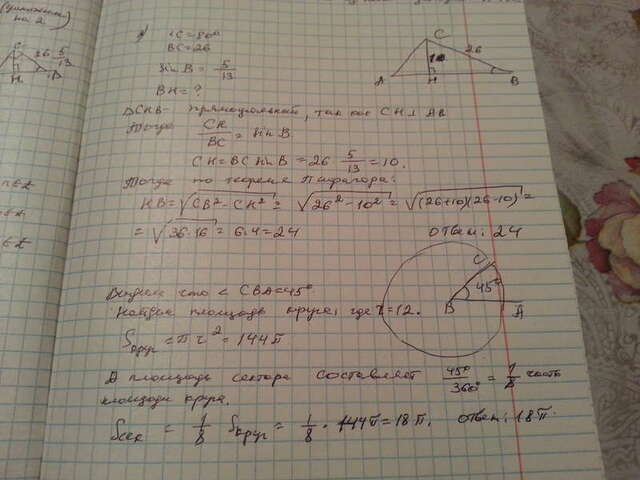 (умножаем
на 2
C
26 5/13
H B
∠C = 90°
BC = 26
sin B = 5/13
BH = ?
C
26
10
A H B
ΔCHB - прямоугольный, так как CH ⊥ AB
Тогда CH/BC = sin B
CH = BC sin B = 26 5/13 = 10.
Тогда по теореме Пифагора:
HB = √CB² - CH² = √26² - 10² = √(26+10)(26-10) =
= √36·16 = 6·4 = 24
ответ: 24
что ∠ CBA = 45°
Найдем площадь круга, где r = 12.
Sкруг = π r² = 144π
C
45°
B A
А площадь сектора составляет 45°/360° = 1/8 часть
площади круга.
Sсек = 1/8 Sкруг = 1/8 · 144π = 18π. ответ: 18π.